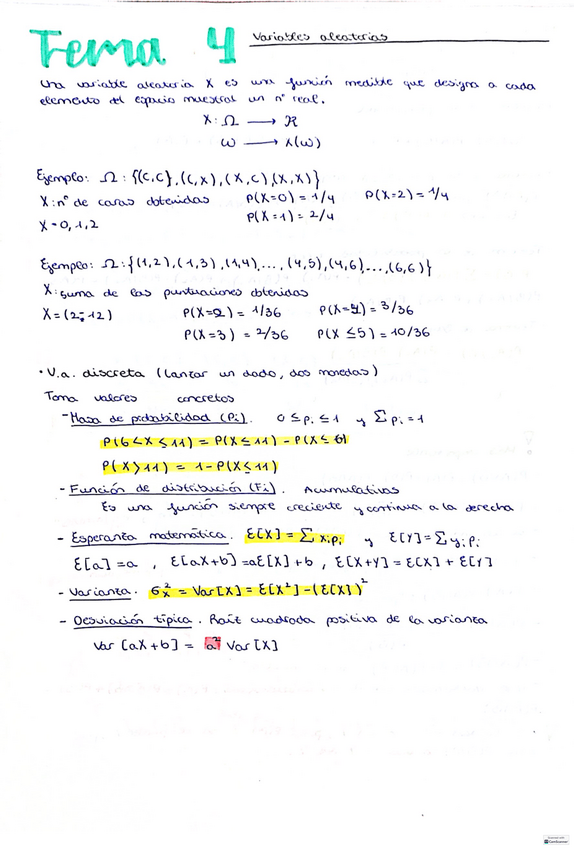 Tema 4 Variables aleatorias
Una variable aleatoria X es una función medible que designa a cada
elemento del espacio muestral un nº real.
X: Ω → ℝ
ω → X(ω)
Ejemplo: Ω: {(C,C), (C,X), (X,C), (X,X)}
X: nº de caras obtenidas P(X=0) = 1/4 P(X=2) = 1/4
X = 0, 1, 2 P(X=1) = 2/4
Ejemplo: Ω: {(1,2), (1,3), (1,4), ..., (4,5), (4,6), ..., (6,6)}
X: suma de las puntuaciones obtenidas
X = (2÷12) P(X=2) = 1/36 P(X=4) = 3/36
P(X=3) = 2/36 P(X ≤ 5) = 10/36
• V.a. discreta (Lanzar un dado, dos monedas)
Toma valores concretos
- Masa de probabilidad (Pi). 0 ≤ pi ≤ 1 y Σ pi = 1
P(6 < X ≤ 11) = P(X ≤ 11) - P(X ≤ 6)
P(X > 11) = 1 - P(X ≤ 11)
- Función de distribución (Fi). Acumulativas
Es una función siempre creciente y continua a la derecha
- Esperanza matemática. E[X] = Σ xi pi y E[Y] = Σ yi pi
E[a] = a , E[aX+b] = aE[X] + b , E[X+Y] = E[X] + E[Y]
- Varianza. σx² = Var[X] = E[X²] - (E[X])²
- Desviación típica. Raíz cuadrada positiva de la varianza
Var [aX+b] = a² Var[X]
CamScanner